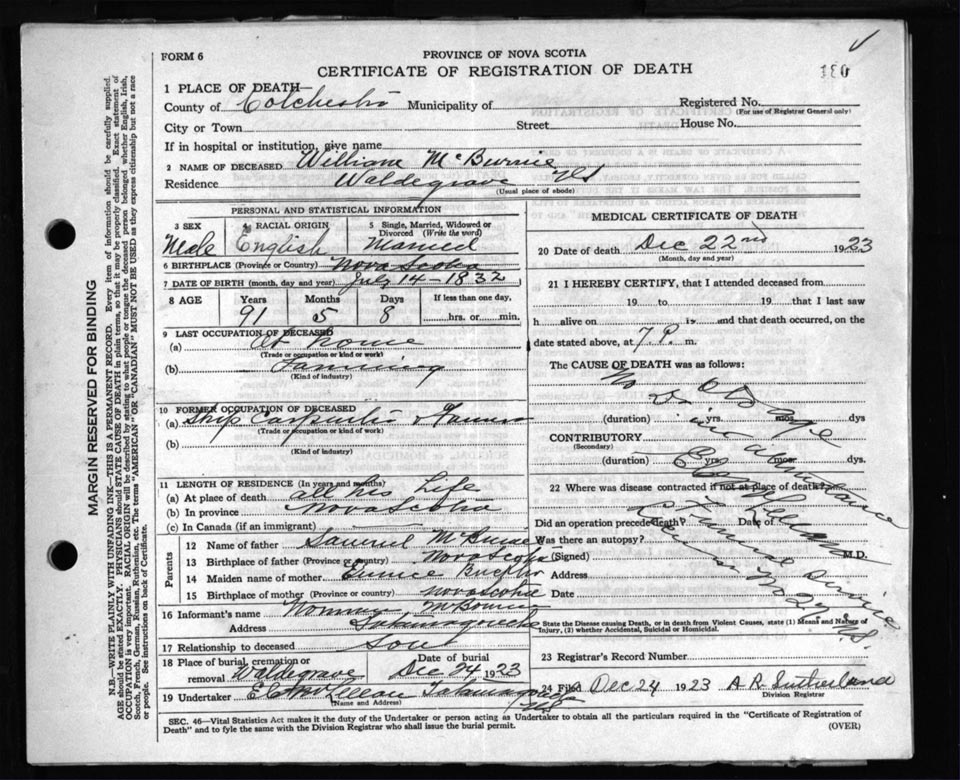 FORM 6
PROVINCE OF NOVA SCOTIA
CERTIFICATE OF REGISTRATION OF DEATH
1 PLACE OF DEATH—
County of Colchester Municipality of Registered No.
(For use of Registrar General only)
City or Town Street House No.
If in hospital or institution, give name
2 NAME OF DECEASED William McBurnie
Residence Waldegrave NS
(Usual place of abode)
PERSONAL AND STATISTICAL INFORMATION
3 SEX 4 RACIAL ORIGIN 5 Single, Married, Widowed or Divorced (Write the word)
Male English Married
6 BIRTHPLACE (Province or Country) Nova Scotia
7 DATE OF BIRTH (month, day and year) July 14 - 1832
8 AGE Years Months Days If less than one day,
91 5 8 hrs. or min.
9 LAST OCCUPATION OF DECEASED
(a) At home
(Trade or occupation or kind of work)
(b) Farming
(Kind of industry)
10 FORMER OCCUPATION OF DECEASED
(a) Ship Carpenter & Farmer
(Trade or occupation or kind of work)
(b)
(Kind of industry)
11 LENGTH OF RESIDENCE (In years and months)
(a) At place of death all his Life
(b) In province Nova Scotia
(c) In Canada (if an immigrant)
Parents
12 Name of father Samuel McBurnie
13 Birthplace of father (Province or country) Nova Scotia
14 Maiden name of mother Eunice
15 Birthplace of mother (Province or country) Nova Scotia
16 Informant's name McBurnie
Address Tatamagouche
17 Relationship to deceased Son
18 Place of burial, cremation or removal Waldegrave Date of burial Dec 24 1923
19 Undertaker McLellan Tatamagouche NS
(Name and Address)
MEDICAL CERTIFICATE OF DEATH
20 Date of death Dec 22nd 1923
(Month, day and year)
21 I HEREBY CERTIFY, that I attended deceased from
19 to 19 that I last saw
h alive on 19 and that death occurred, on
date stated above, at 7 P. m.
The CAUSE OF DEATH was as follows:
No Dr
in attendance
(duration) yrs. mos. dys
CONTRIBUTORY
(Secondary)
(duration) yrs. mos. dys.
22 Where was disease contracted if not at place of death?
Did an operation precede death? Date of
Was there an autopsy?
(Signed) M.D.
Address
Date
State the Disease causing Death, or in death from Violent Causes, state (1) Means and Nature of Injury, (2) whether Accidental, Suicidal or Homicidal.
23 Registrar's Record Number
24 Filed Dec 24 1923 A R Sutherland
Division Registrar
SEC. 46—Vital Statistics Act makes it the duty of the Undertaker or person acting as Undertaker to obtain all the particulars required in the "Certificate of Registration of
Death" and to fyle the same with the Division Registrar who shall issue the burial permit. (OVER)
MARGIN RESERVED FOR BINDING
N.B.—WRITE PLAINLY WITH UNFADING INK—THIS IS A PERMANENT RECORD. Every item of information should be carefully supplied.
AGE should be stated EXACTLY. PHYSICIANS should STATE CAUSE OF DEATH in plain terms, so that it may be properly classified. Exact statement of
OCCUPATION is very important. RACIAL ORIGIN will be described by stating to what people or tongue the deceased person belonged whether English, Irish,
Scotch, French, German, Russian, Ruthenian, etc. The terms "AMERICAN" OR "CANADIAN" MUST NOT BE USED as they express citizenship but not a race
or people. See instructions on back of Certificate.